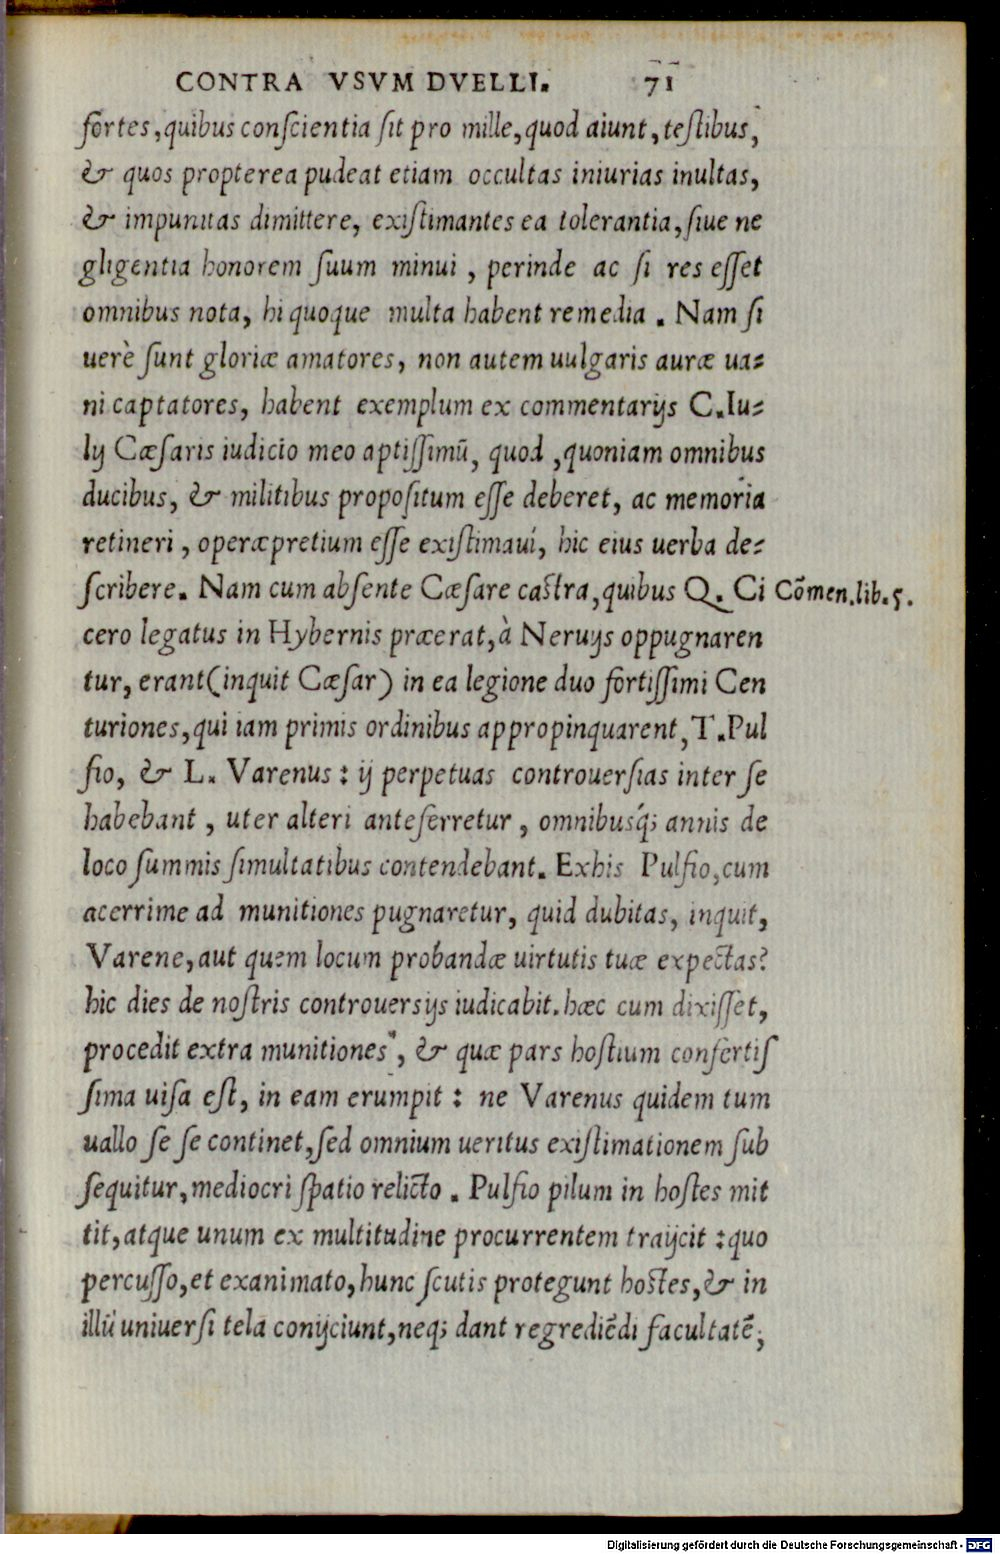 CONTRA VSVM DVELLI. 71
fortes, quibus conscientia sit pro mille, quod aiunt, testibus,
& quos propterea pudeat etiam occultas iniurias inultas,
& impunitas dimittere, existimantes ea tolerantia, siue ne
gligentia honorem suum minui, perinde ac si res esset
omnibus nota, hi quoque multa habent remedia. Nam si
uerè sunt gloriæ amatores, non autem uulgaris auræ ua-
ni captatores, habent exemplum ex commentarijs C. Iu-
lij Cæsaris iudicio meo aptissimū, quod, quoniam omnibus
ducibus, & militibus propositum esse deberet, ac memoria
retineri, operæpretium esse existimaui, hic eius uerba de-
scribere. Nam cum absente Cæsare castra, quibus Q. Ci
Cōmen. lib. 5.
cero legatus in Hybernis præerat, à Neruijs oppugnaren
tur, erant (inquit Cæsar) in ea legione duo fortissimi Cen
turiones, qui iam primis ordinibus appropinquarent, T. Pul
fio, & L. Varenus: ij perpetuas controuersias inter se
habebant, uter alteri anteferretur, omnibusq́; annis de
loco summis simultatibus contendebant. Exhis Pulfio, cum
acerrime ad munitiones pugnaretur, quid dubitas, inquit,
Varene, aut quem locum probandæ uirtutis tuæ expectas?
hic dies de nostris controuersijs iudicabit. hæc cum dixisset,
procedit extra munitiones, & quæ pars hostium confertis
sima uisa est, in eam erumpit: ne Varenus quidem tum
uallo se se continet, sed omnium ueritus existimationem sub
sequitur, mediocri spatio relicto. Pulfio pilum in hostes mit
tit, atque unum ex multitudine procurrentem traijcit: quo
percusso, et exanimato, hunc scutis protegunt hostes, & in
illū uniuersi tela conijciunt, neq; dant regrediēdi facultatē;
Digitalisierung gefördert durch die Deutsche Forschungsgemeinschaft - DFG